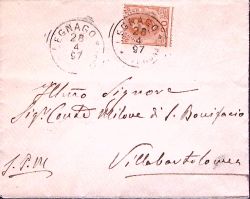 LEGNAGO
28
4
97
LEGNAGO
28
4
97
Illmo Signore
Sig. Conte Milone di S. Bonifacio
S. P. M
Villabartolomea